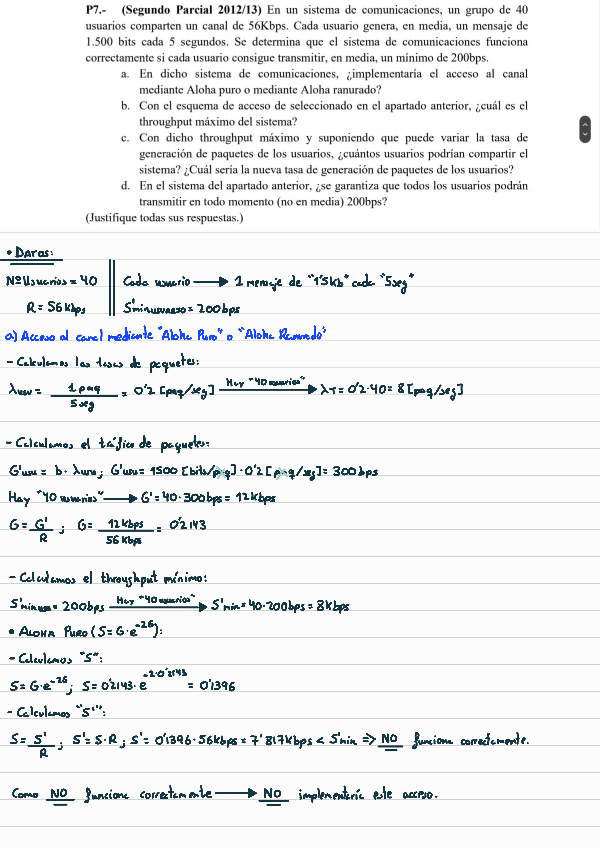 P7.- (Segundo Parcial 2012/13) En un sistema de comunicaciones, un grupo de 40
usuarios comparten un canal de 56Kbps. Cada usuario genera, en media, un mensaje de
1.500 bits cada 5 segundos. Se determina que el sistema de comunicaciones funciona
correctamente si cada usuario consigue transmitir, en media, un mínimo de 200bps.
a. En dicho sistema de comunicaciones, ¿implementaría el acceso al canal
mediante Aloha puro o mediante Aloha ranurado?
b. Con el esquema de acceso de seleccionado en el apartado anterior, ¿cuál es el
throughput máximo del sistema?
c. Con dicho throughput máximo y suponiendo que puede variar la tasa de
generación de paquetes de los usuarios, ¿cuántos usuarios podrían compartir el
sistema? ¿Cuál sería la nueva tasa de generación de paquetes de los usuarios?
d. En el sistema del apartado anterior, ¿se garantiza que todos los usuarios podrán
transmitir en todo momento (no en media) 200bps?
(Justifique todas sus respuestas.)
• DATOS:
Nº Usuarios = 40 Cada usuario → 1 mensaje de "1'5kb" cada "5seg"
R = 56 Kbps S'minusuario = 200 bps
a) Acceso al canal mediante "Aloha Puro" o "Aloha Ranurado"
- Calculamos las tasas de paquetes:
λusu = 1 paq / 5 seg = 0'2 [paq/seg] Hay "40 usuarios" → λT = 0'2·40 = 8 [paq/seg]
- Calculamos el tráfico de paquetes:
G'usu = b · λusu; G'usu = 1500 [bits/paq] · 0'2 [paq/seg] = 300 bps
Hay "40 usuarios" → G' = 40·300bps = 12 kbps
G = G'/R ; G = 12 kbps / 56 Kbps = 0'2143
- Calculamos el throughput mínimo:
S'minusu = 200 bps Hay "40 usuarios" → S'min = 40·200bps = 8 kbps
• ALOHA PURO (S = G·e^-2G):
- Calculamos "S":
S = G·e^-2G; S = 0'2143·e^-2·0'2143 = 0'1396
- Calculamos "S'":
S = S'/R ; S' = S·R ; S' = 0'1396·56Kbps = 7'817Kbps < S'min ⇒ NO funciona correctamente.
Como NO funciona correctamente → NO implementaría este acceso.